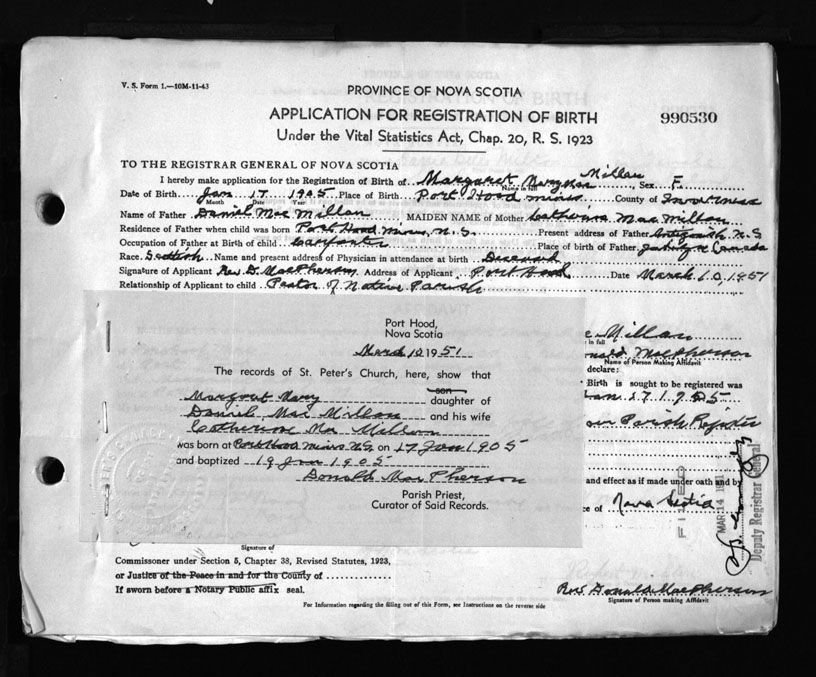 V. S. Form 1.—10M-11-43
PROVINCE OF NOVA SCOTIA
APPLICATION FOR REGISTRATION OF BIRTH
990530
Under the Vital Statistics Act, Chap. 20, R. S. 1923
TO THE REGISTRAR GENERAL OF NOVA SCOTIA
I hereby make application for the Registration of Birth of Margaret Mary Mac Millan, Sex F.
Name in full
Date of Birth Jan 17 1905 Place of Birth Port Hood mines County of Inverness
Month Date Year
Name of Father Daniel Mac Millan MAIDEN NAME of Mother Catherine Mac Millan
Residence of Father when child was born Port Hood Mines, N.S. Present address of Father Antigonish N.S
Occupation of Father at Birth of child Carpenter Place of birth of Father Canada
Race Scottish Name and present address of Physician in attendance at birth Deceased
Signature of Applicant Rev. D. MacPherson Address of Applicant Port Hood Date March 10, 1951
Relationship of Applicant to child Pastor of Native Parish
Port Hood,
Nova Scotia
March 10 1951
The records of St. Peter's Church, here, show that
son
Margaret Mary daughter of
Daniel Mac Millan and his wife
Catherine Mac Millan
was born at Port Hood mines N.S. on 17 Jan 1905
and baptized 19 Jan 1905
Donald MacPherson
Parish Priest,
Curator of Said Records.
Millan
in full
Donald MacPherson
Name of Person Making Affidavit
declare:
Birth is sought to be registered was
Jan 17 1905
our Parish Register
and effect as if made under oath and by
ce of Nova Scotia
FILED
MAR 14 1951
Deputy Registrar General
Signature of
Commissioner under Section 5, Chapter 38, Revised Statutes, 1923,
or Justice of the Peace in and for the County of
If sworn before a Notary Public affix seal.
Rev. Donald MacPherson
Signature of Person making Affidavit
For Information regarding the filling out of this Form, see Instructions on the reverse side